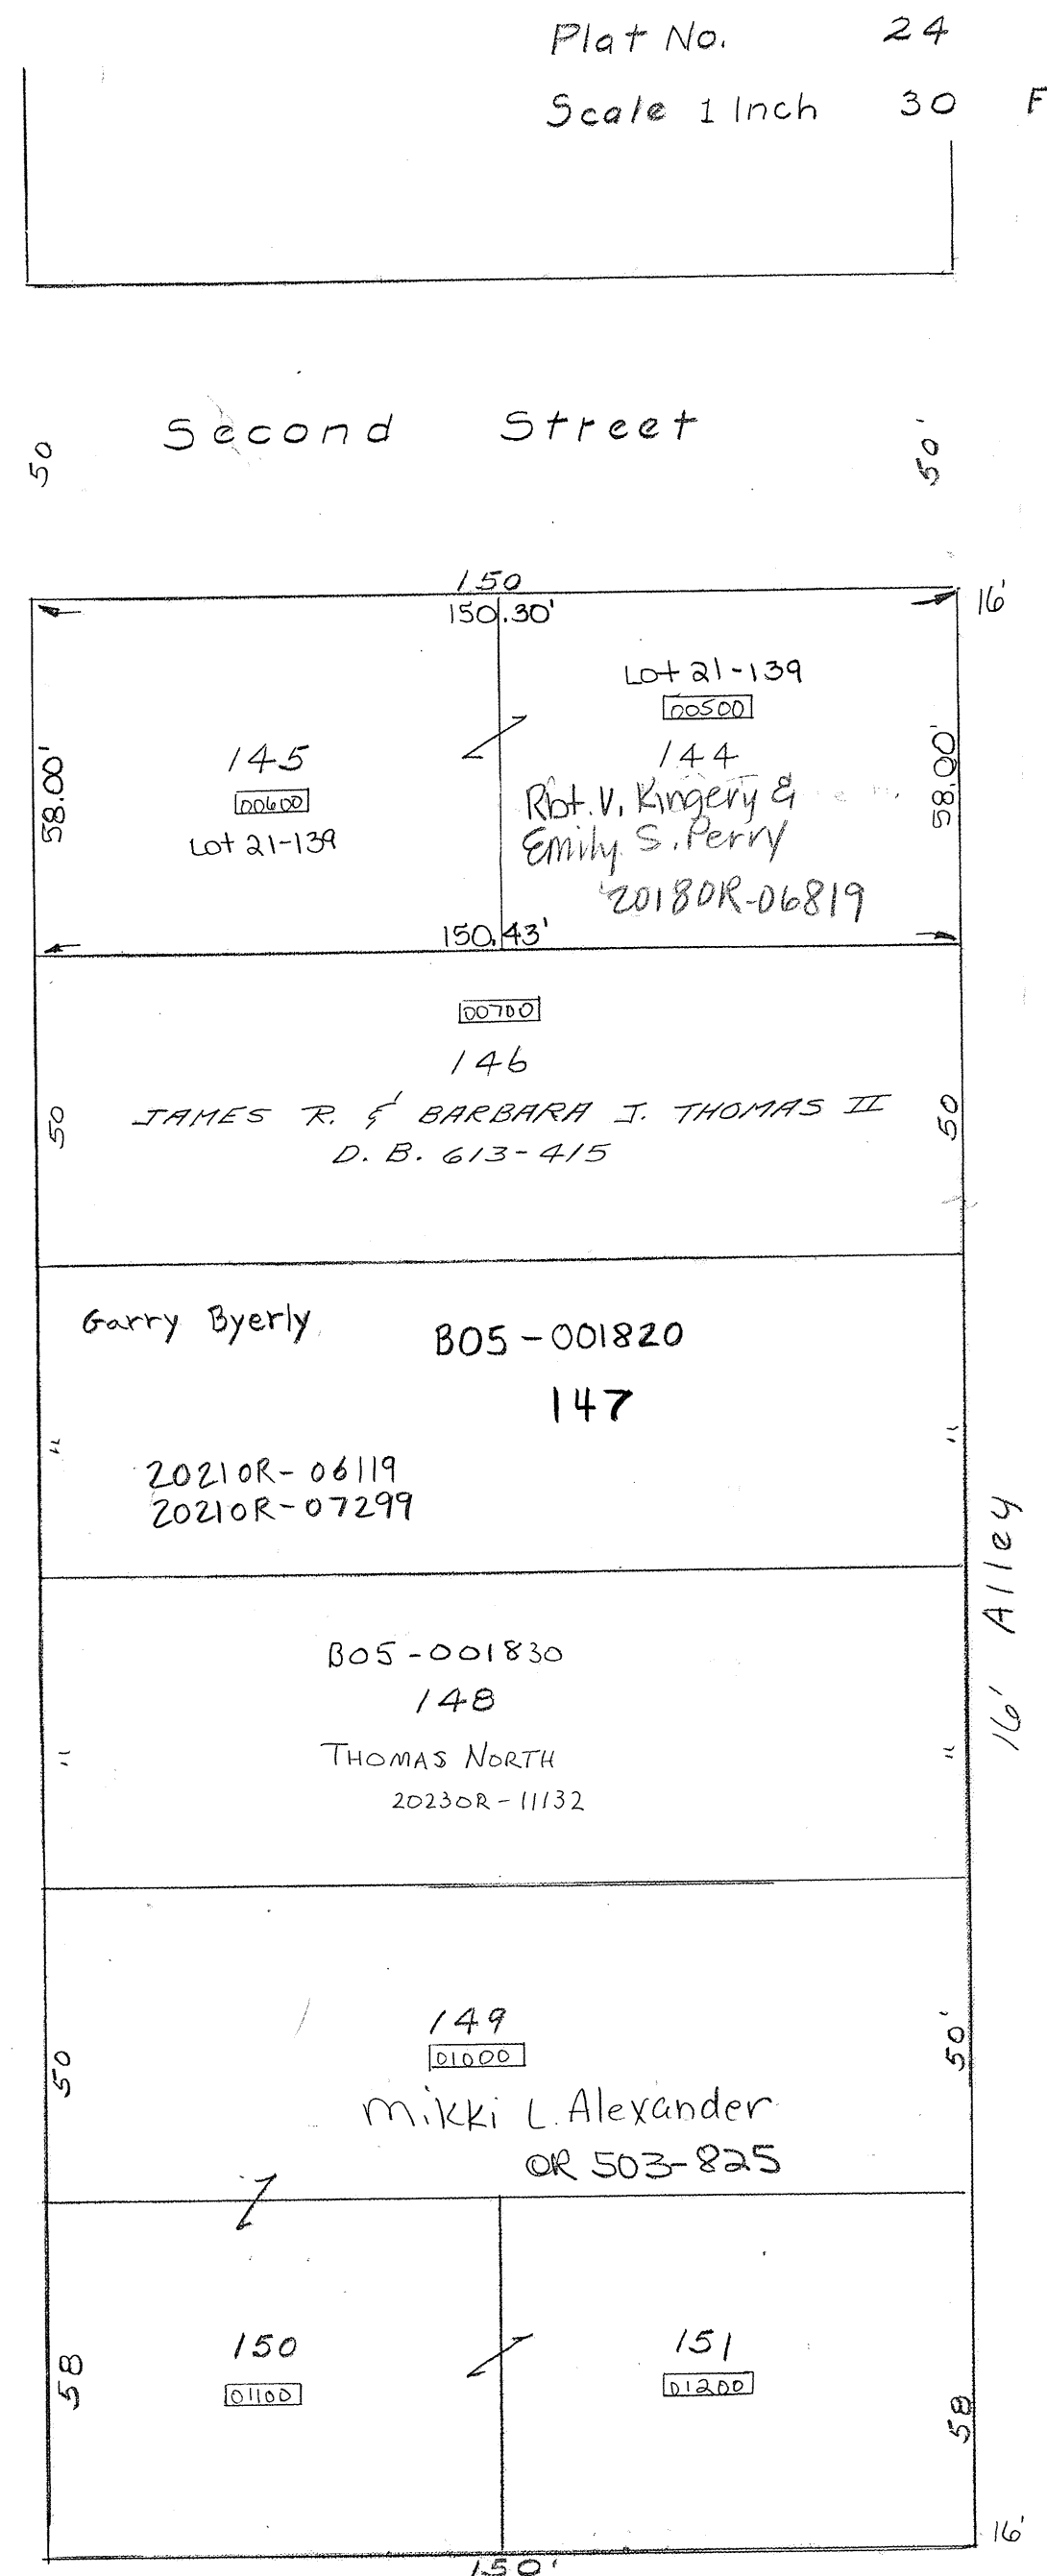 Plat No. 24
Scale 1 Inch 30 F
50 Second Street 50'
150
150.30'
16'
Lot 21-139
00500
144
Rbt. V. Kingery &
Emily S. Perry
20180R-06819
58.00'
145
00600
Lot 21-139
58.00'
150.43'
00700
146
50 JAMES R. & BARBARA J. THOMAS II 50
D. B. 613-415
Garry Byerly B05-001820
147
" "
20210R-06119
20210R-07299
16' Alley
B05-001830
148
" THOMAS NORTH "
20230R-11132
149
01000
50 50'
Mikki L. Alexander
OR 503-825
150 151
01100 01200
58 58
16'
150'